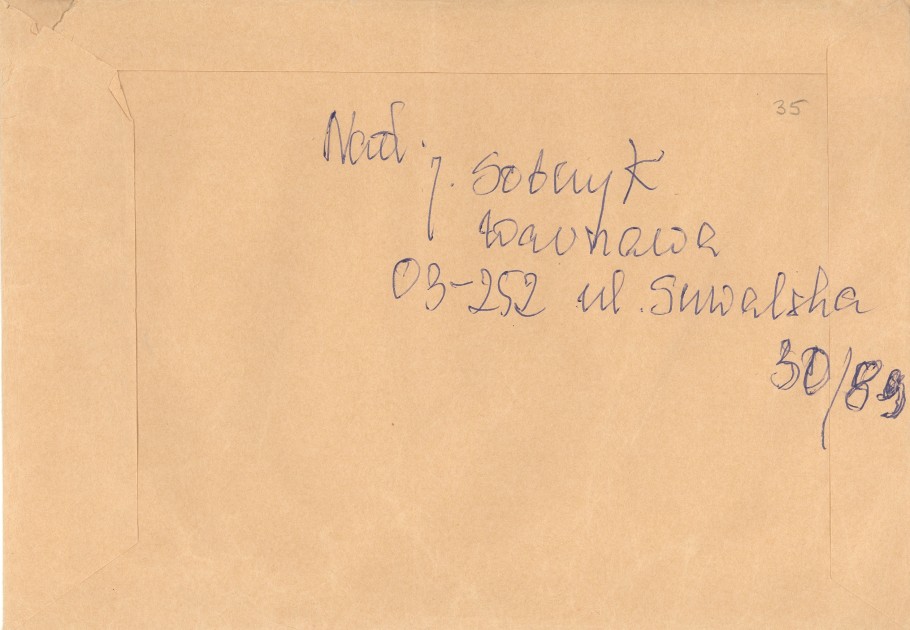 35
Nad.
J. Sobczyk
Warszawa
03-252 ul. Suwalska
30/89